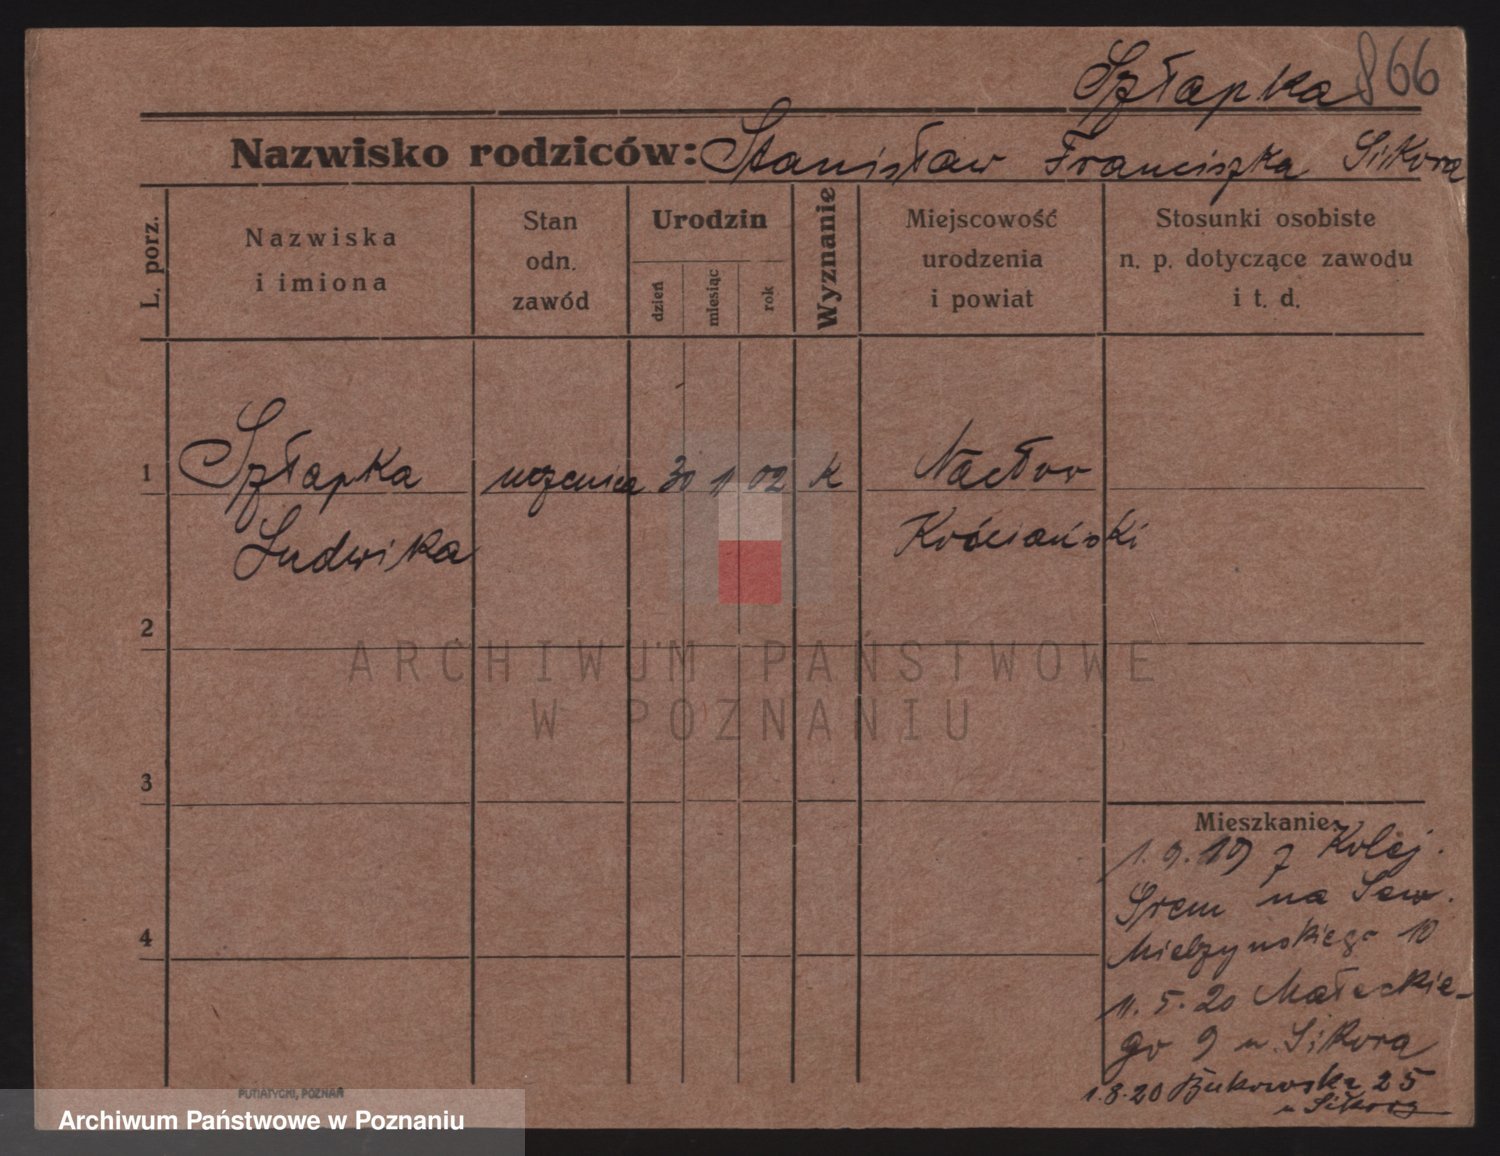 Szłapka 866
Nazwisko rodziców: Stanisław Franciszka Sikora
L. porz.
Nazwiska
i imiona
Stan
odn.
zawód
Urodzin
dzień
miesiąc
rok
Wyznanie
Miejscowość
urodzenia
i powiat
Stosunki osobiste
n. p. dotyczące zawodu
i t. d.
1
Szłapka uczenica 30 1 02 K Nacław
Ludwika Kościański
2
ARCHIWUM PAŃSTWOWE
W POZNANIU
3
Mieszkanie
1.9.19 z Kolej.
Śrem na Sew.
4
Mielżyńskiego 10
11.5.20 Małeckie-
go 9 u. Sikora
1.8.20 Bukowska 25
u Sikora
PUTIATYCKI, POZNAŃ
Archiwum Państwowe w Poznaniu